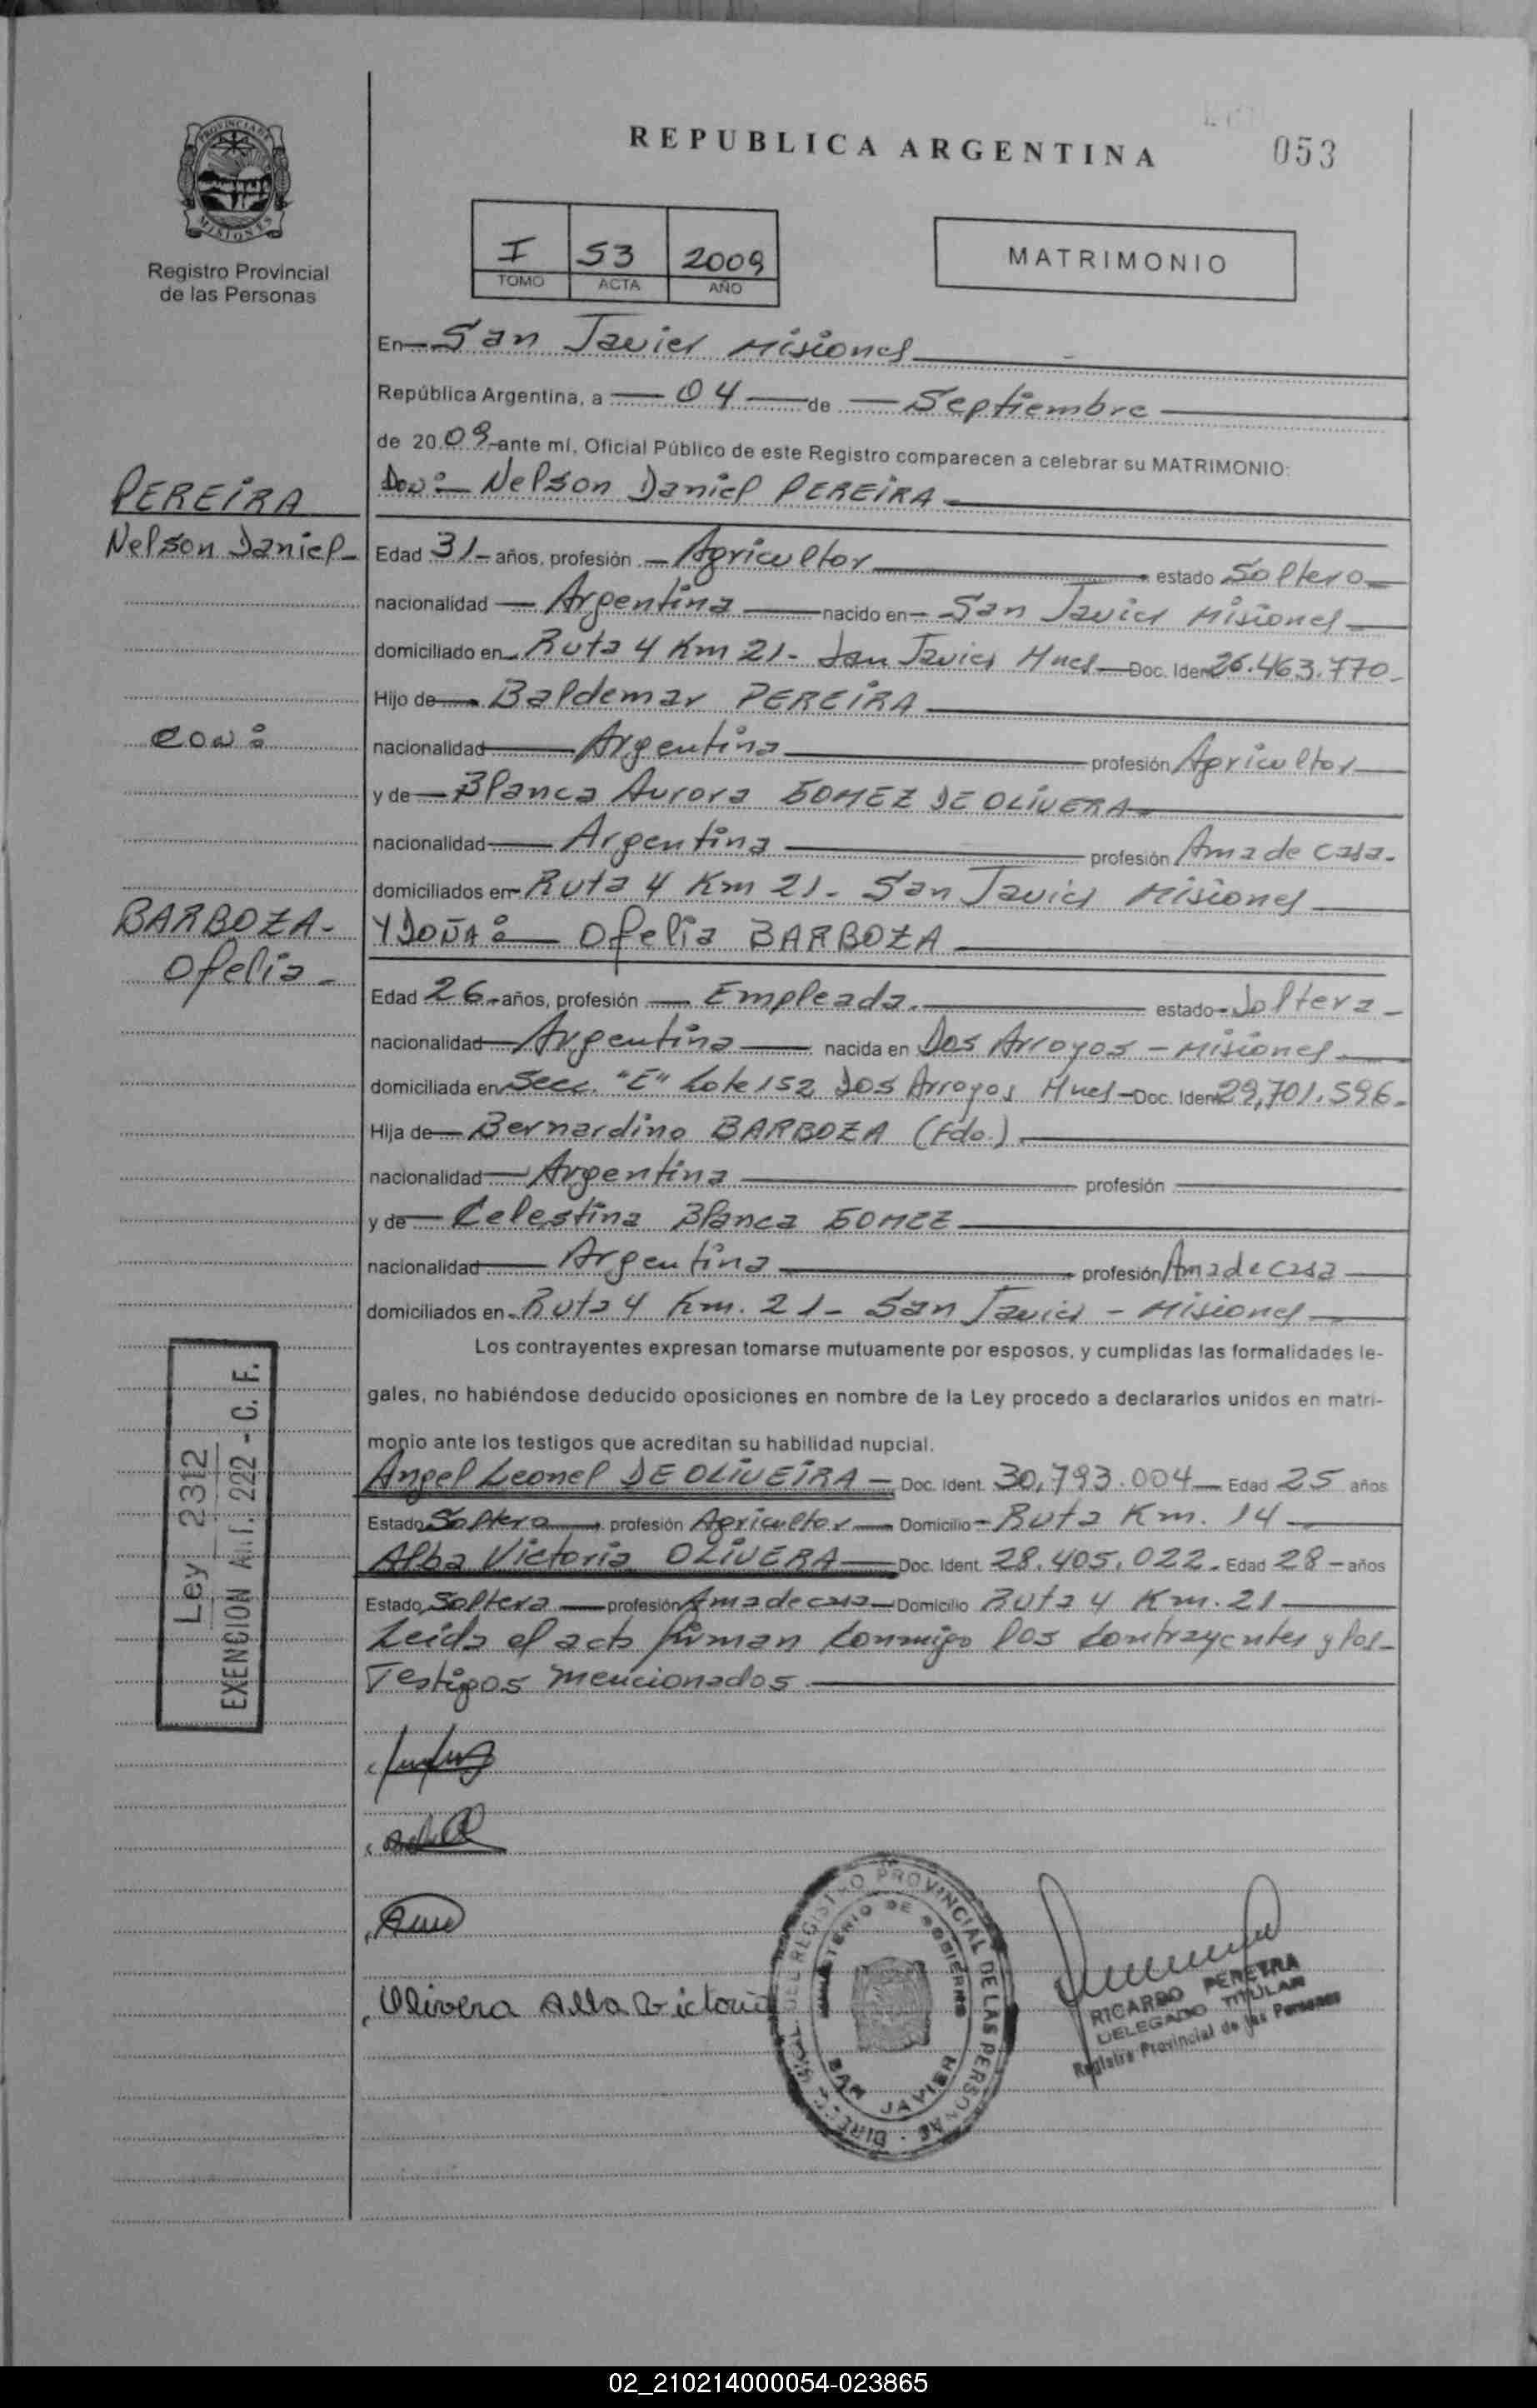 REPUBLICA ARGENTINA
053
PROVINCIA DE
MISIONES
Registro Provincial
de las Personas
I 53 2009
TOMO ACTA AÑO
MATRIMONIO
En San Javier Misiones
República Argentina, a 04 de Septiembre
de 2009 ante mí, Oficial Público de este Registro comparecen a celebrar su MATRIMONIO:
PEREIRA
Nelson Daniel
Don: Nelson Daniel PEREIRA
Edad 31 años, profesión Agricultor estado Soltero
nacionalidad Argentina nacido en San Javier Misiones
domiciliado en Ruta 4 Km 21 - San Javier Mnes Doc. Ident 26.463.770
Hijo de Baldemar PEREIRA
con:
nacionalidad Argentina profesión Agricultor
y de Blanca Aurora GOMEZ DE OLIVERA
nacionalidad Argentina profesión Ama de casa.
domiciliados en Ruta 4 Km 21 - San Javier Misiones
BARBOZA -
Ofelia -
Y DOÑA: Ofelia BARBOZA
Edad 26 años, profesión Empleada. estado Soltera
nacionalidad Argentina nacida en Dos Arroyos - Misiones
domiciliada en Secc. "E" Lote 152 Dos Arroyos Mnes - Doc. Ident 29,701.596.
Hija de Bernardino BARBOZA (Fdo.)
nacionalidad Argentina profesión
y de Celestina Blanca GOMEZ
nacionalidad Argentina profesión Ama de casa
domiciliados en Ruta 4 Km. 21 - San Javier - Misiones
Los contrayentes expresan tomarse mutuamente por esposos, y cumplidas las formalidades le-
gales, no habiéndose deducido oposiciones en nombre de la Ley procedo a declararlos unidos en matri-
monio ante los testigos que acreditan su habilidad nupcial.
Angel Leonel DE OLIVEIRA - Doc. Ident. 30,793.004 Edad 25 años
Estado Soltero profesión Agricultor Domicilio Ruta Km. 14
Alba Victoria OLIVERA Doc. Ident. 28.405.022. Edad 28 años
Estado Soltera profesión Ama de casa Domicilio Ruta 4 Km. 21
Leída el acta firman conmigo los contrayentes y los
Testigos mencionados
Ley 2312
EXENCION Art. 222 - C. F.
Olivera Alba Victoria
REGISTRO PROVINCIAL DE LAS PERSONAS
MINISTERIO DE GOBIERNO
SAN JAVIER
RICARDO PEREIRA
DELEGADO TITULAR
Registro Provincial de las Personas
02_210214000054-023865